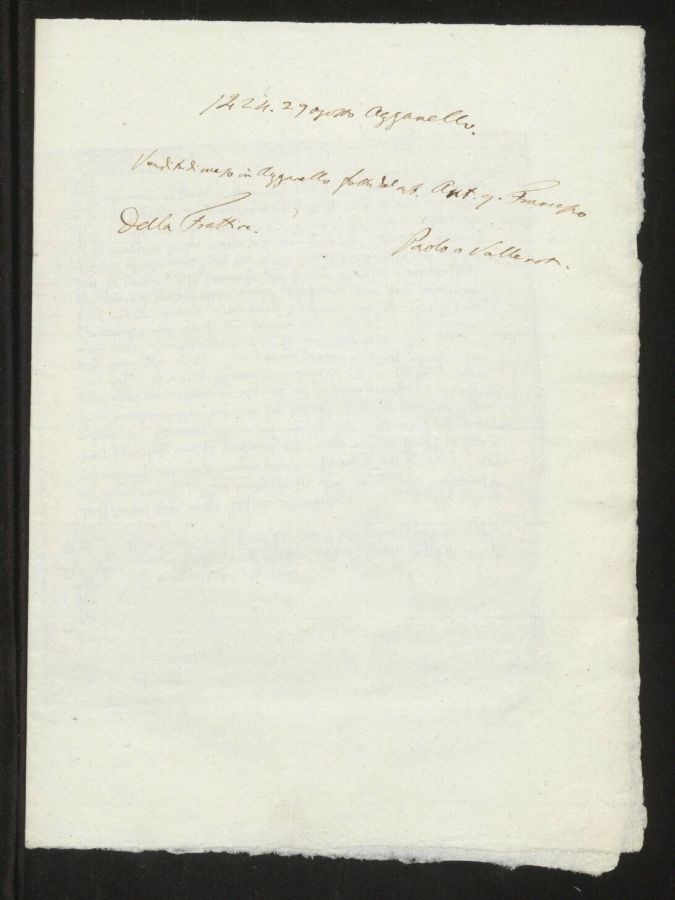 1424. 29 agosto Azzanello.
Vendita di maso in Azzanello fatta dal not. Ant. q. Francesco
Della Frattina.
Paolo a Valle not.